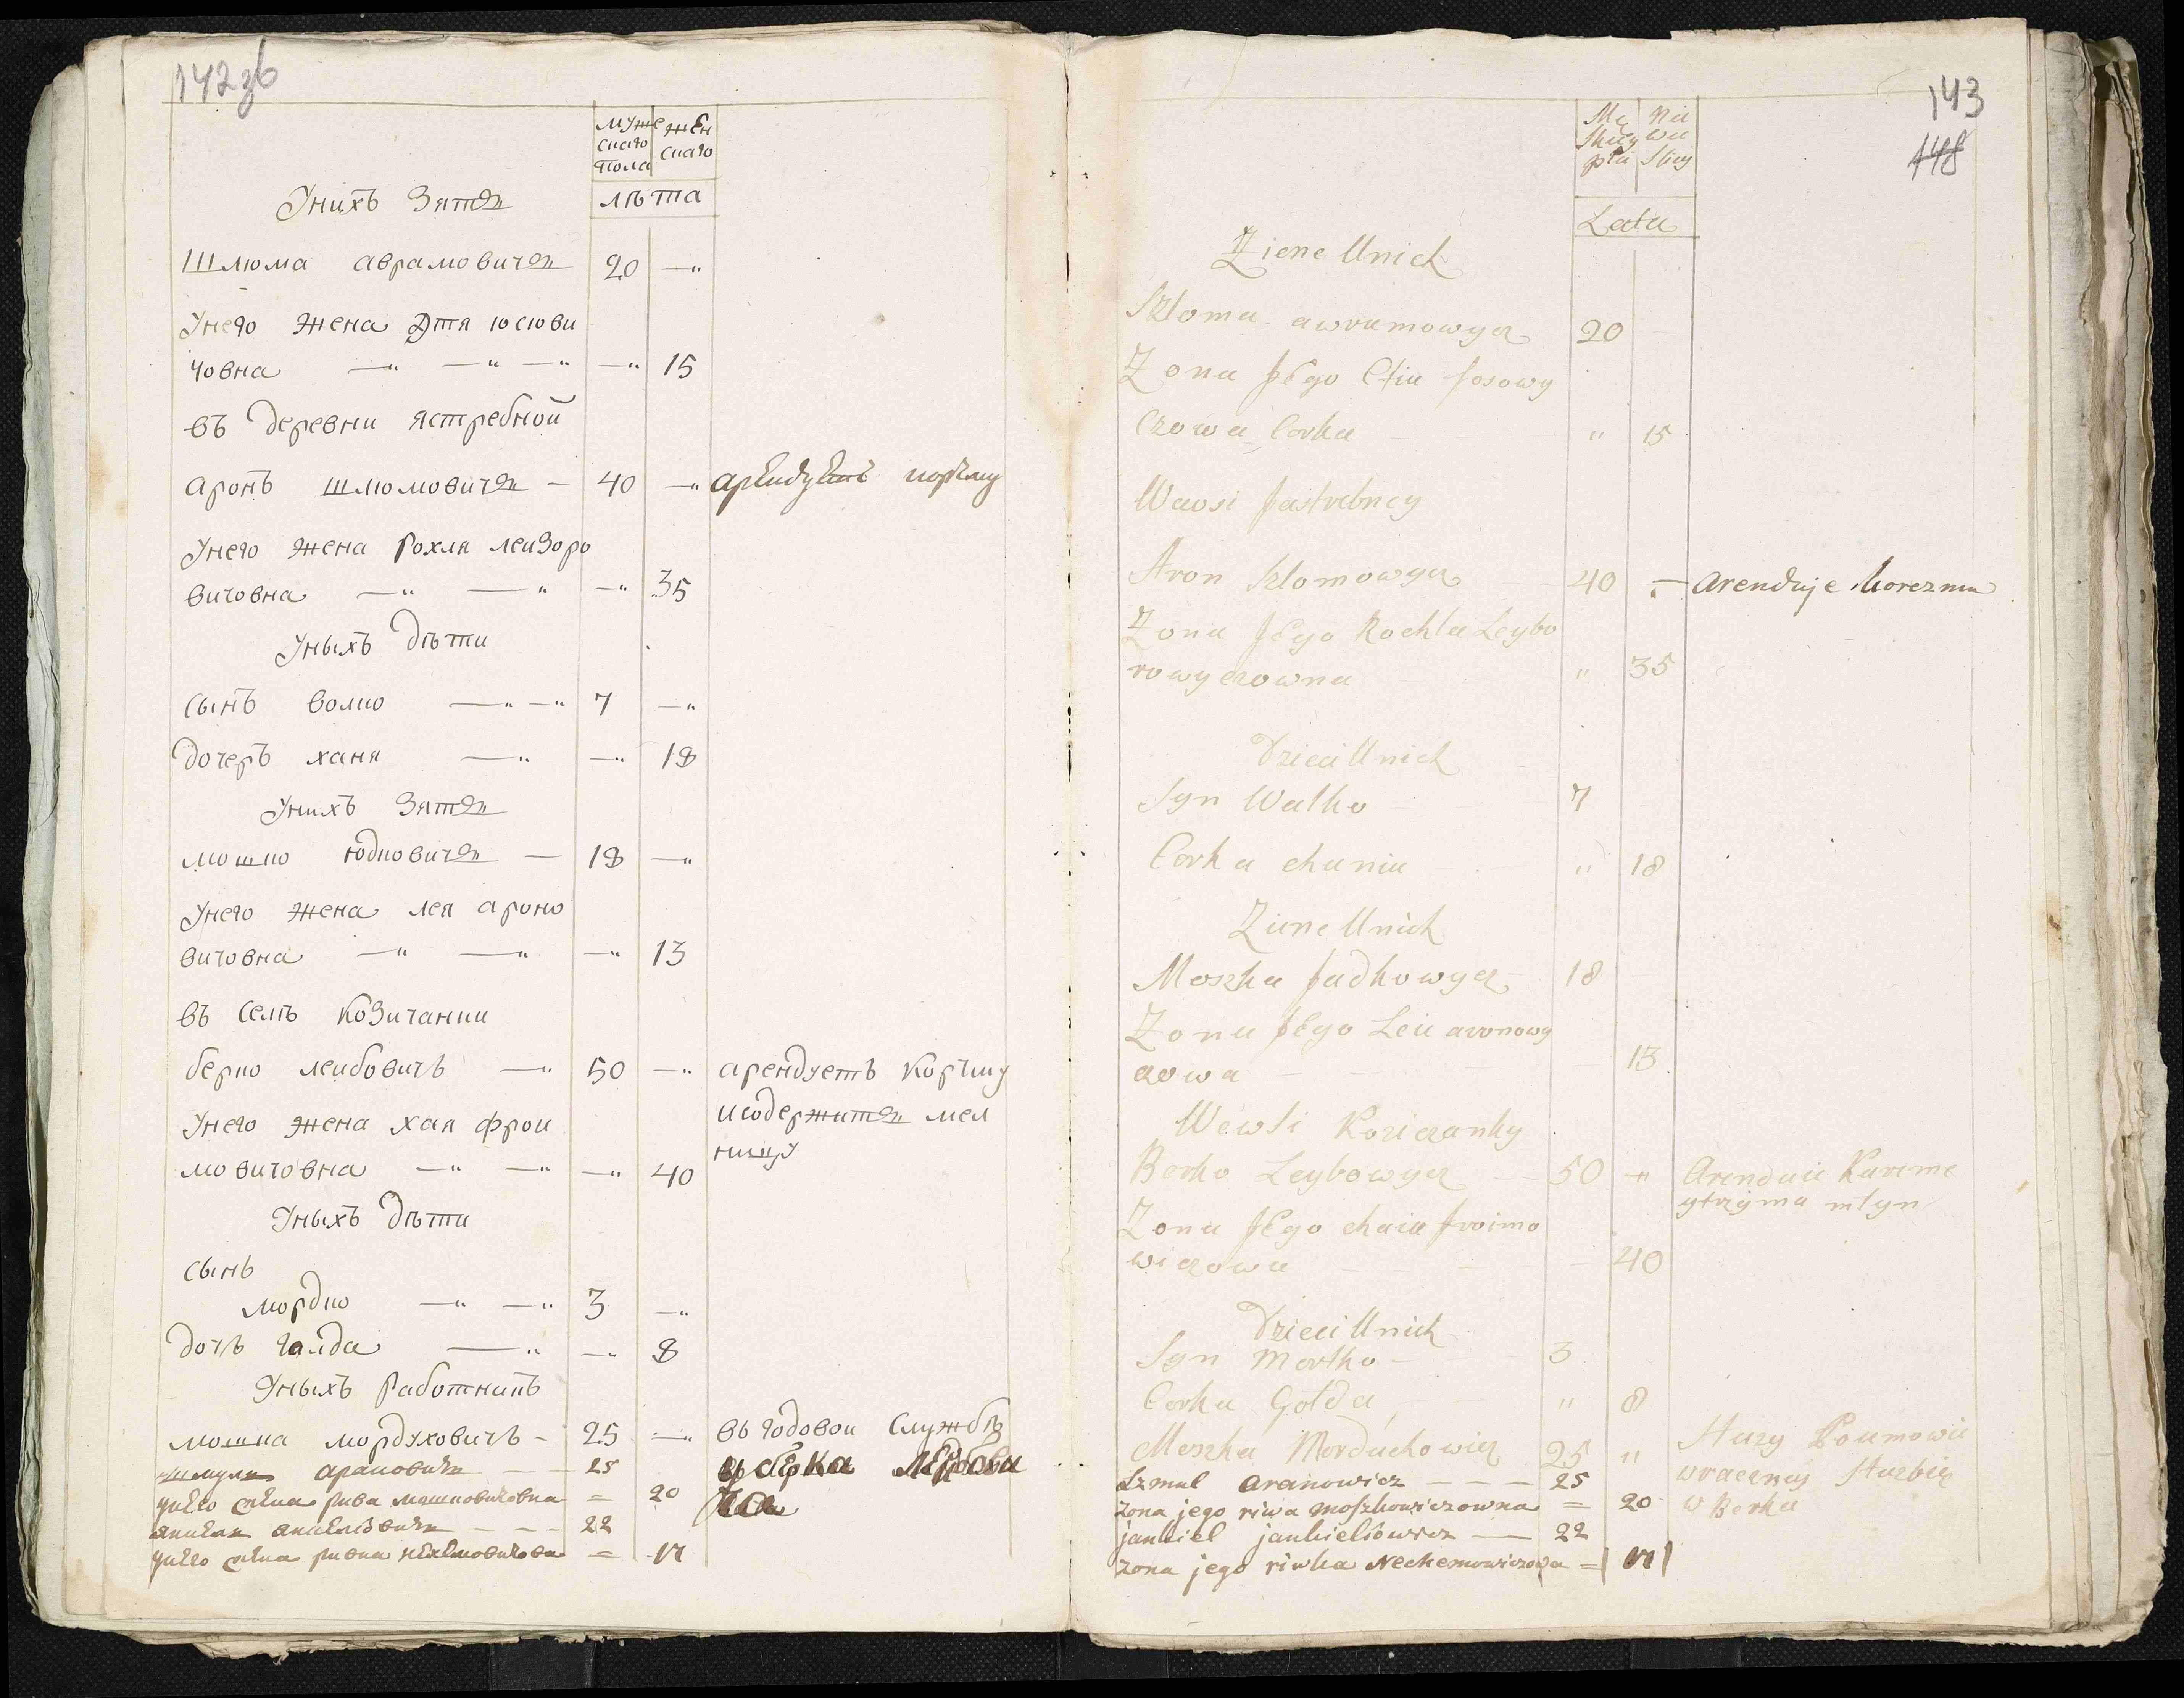 142зв
муже
скаго
пола
жен
скаго
лѣта
Унихъ Зятъ
Шлюма аврамовичъ 20 —"
Унего жена Этя юсюви
човна —" —" —" —" 15
въ деревни ястребной
аронъ шлюмовичъ — 40 —" арендуетъ корчму
Унего жена Рохля леизоро
вичовна —" —" —" 35
Уныхъ дѣти
сынъ волко —" —" 7 —"
дочеръ ханя —" —" 18
Унихъ Зятъ
мошко юдковичъ — 18 —"
Унего жена лея ароно
вичовна —" —" —" 13
въ селѣ Козичанки
берко леибовичъ —" 50 —" арендуетъ Корчму
исодержитъ мел
ницу
Унего жена хая фрои
мовичовна —" —" —" 40
Уныхъ дѣти
сынъ
мордко —" —" 3 —"
дочъ голда —" —" 8
Уныхъ Работникъ
мошка мордуховичъ - 25 —" въ годовои Службѣ
шмуль арановичъ — — 25 убѣрка Лѣйбови
унего жена рива мошковичовна = 20
янкель янкелювичъ - - - 22
унего жена ривка нехемовичова = 17
143
148
Mę
skiey
płci
Nie
wie
skiey
Lata
Ziene Unich
Szloma awramowycz 20
Zona Jego Etia Josowy
czowa Corka " 15
Wewsi Jastrebney
Aron Szlomowycz 40 — arenduje korczmu
Zona Jego Rochla Leybo
rowyczowna " 35
Dzieci Unich
Syn Walko 7
Corka chania " 18
Ziene Unich
Moszka Jadkowycz 18
Zona Jego Leia aronowy
czowa 13
Wewsi Koziczanky
Berko Leybowycz 50 —" Arenduie Karcme
ytrzyma mlyn
Zona Jego chaia Froimo
wiczowa 40
Dzieci Unich
Syn Mortko 3
Corka Golda " 8
Moszka Morduchowicz 25 " Stuzy Poumowie
Szmul aranowicz — — — 25 wroczney Sluzbie
zona jego riwa moszkowiczowna = 20 w Berka
jankiel jankielowicz — 22
zona jego riwka Nechemowiczowa = 17